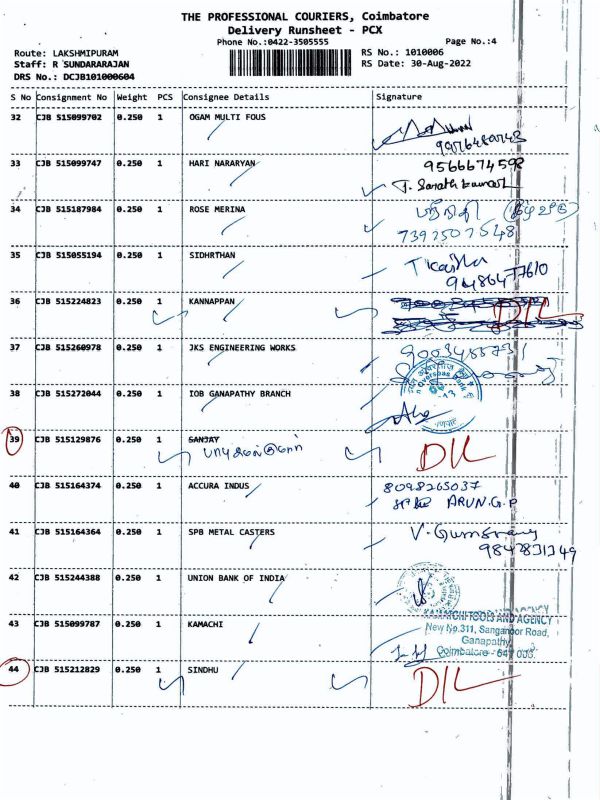 THE PROFESSIONAL COURIERS, Coimbatore
Delivery Runsheet - PCX
Phone No.:0422-3505555 Page No.:4
Route: LAKSHMIPURAM RS No.: 1010006
Staff: R SUNDARARAJAN RS Date: 30-Aug-2022
DRS No.: DCJB101000604
S No Consignment No Weight PCS Consignee Details Signature
32 CJB 515099702 0.250 1 OGAM MULTI FOUS
33 CJB 515099747 0.250 1 HARI NARARYAN 9566674598
T. Sarath kumar
34 CJB 515187984 0.250 1 ROSE MERINA
35 CJB 515055194 0.250 1 SIDHRTHAN
36 CJB 515224823 0.250 1 KANNAPPAN D/L
37 CJB 515260978 0.250 1 JKS ENGINEERING WORKS
38 CJB 515272044 0.250 1 IOB GANAPATHY BRANCH
39 CJB 515129876 0.250 1 SANJAY D/L
40 CJB 515164374 0.250 1 ACCURA INDUS 8098265037
ARUN.G.P
41 CJB 515164364 0.250 1 SPB METAL CASTERS
9847831349
42 CJB 515244388 0.250 1 UNION BANK OF INDIA
43 CJB 515099787 0.250 1 KAMACHI TOOLS AND AGENCY
New No.311, Sanganoor Road,
Ganapathy,
Coimbatore - 641 003.
44 CJB 515212829 0.250 1 SINDHU D/L